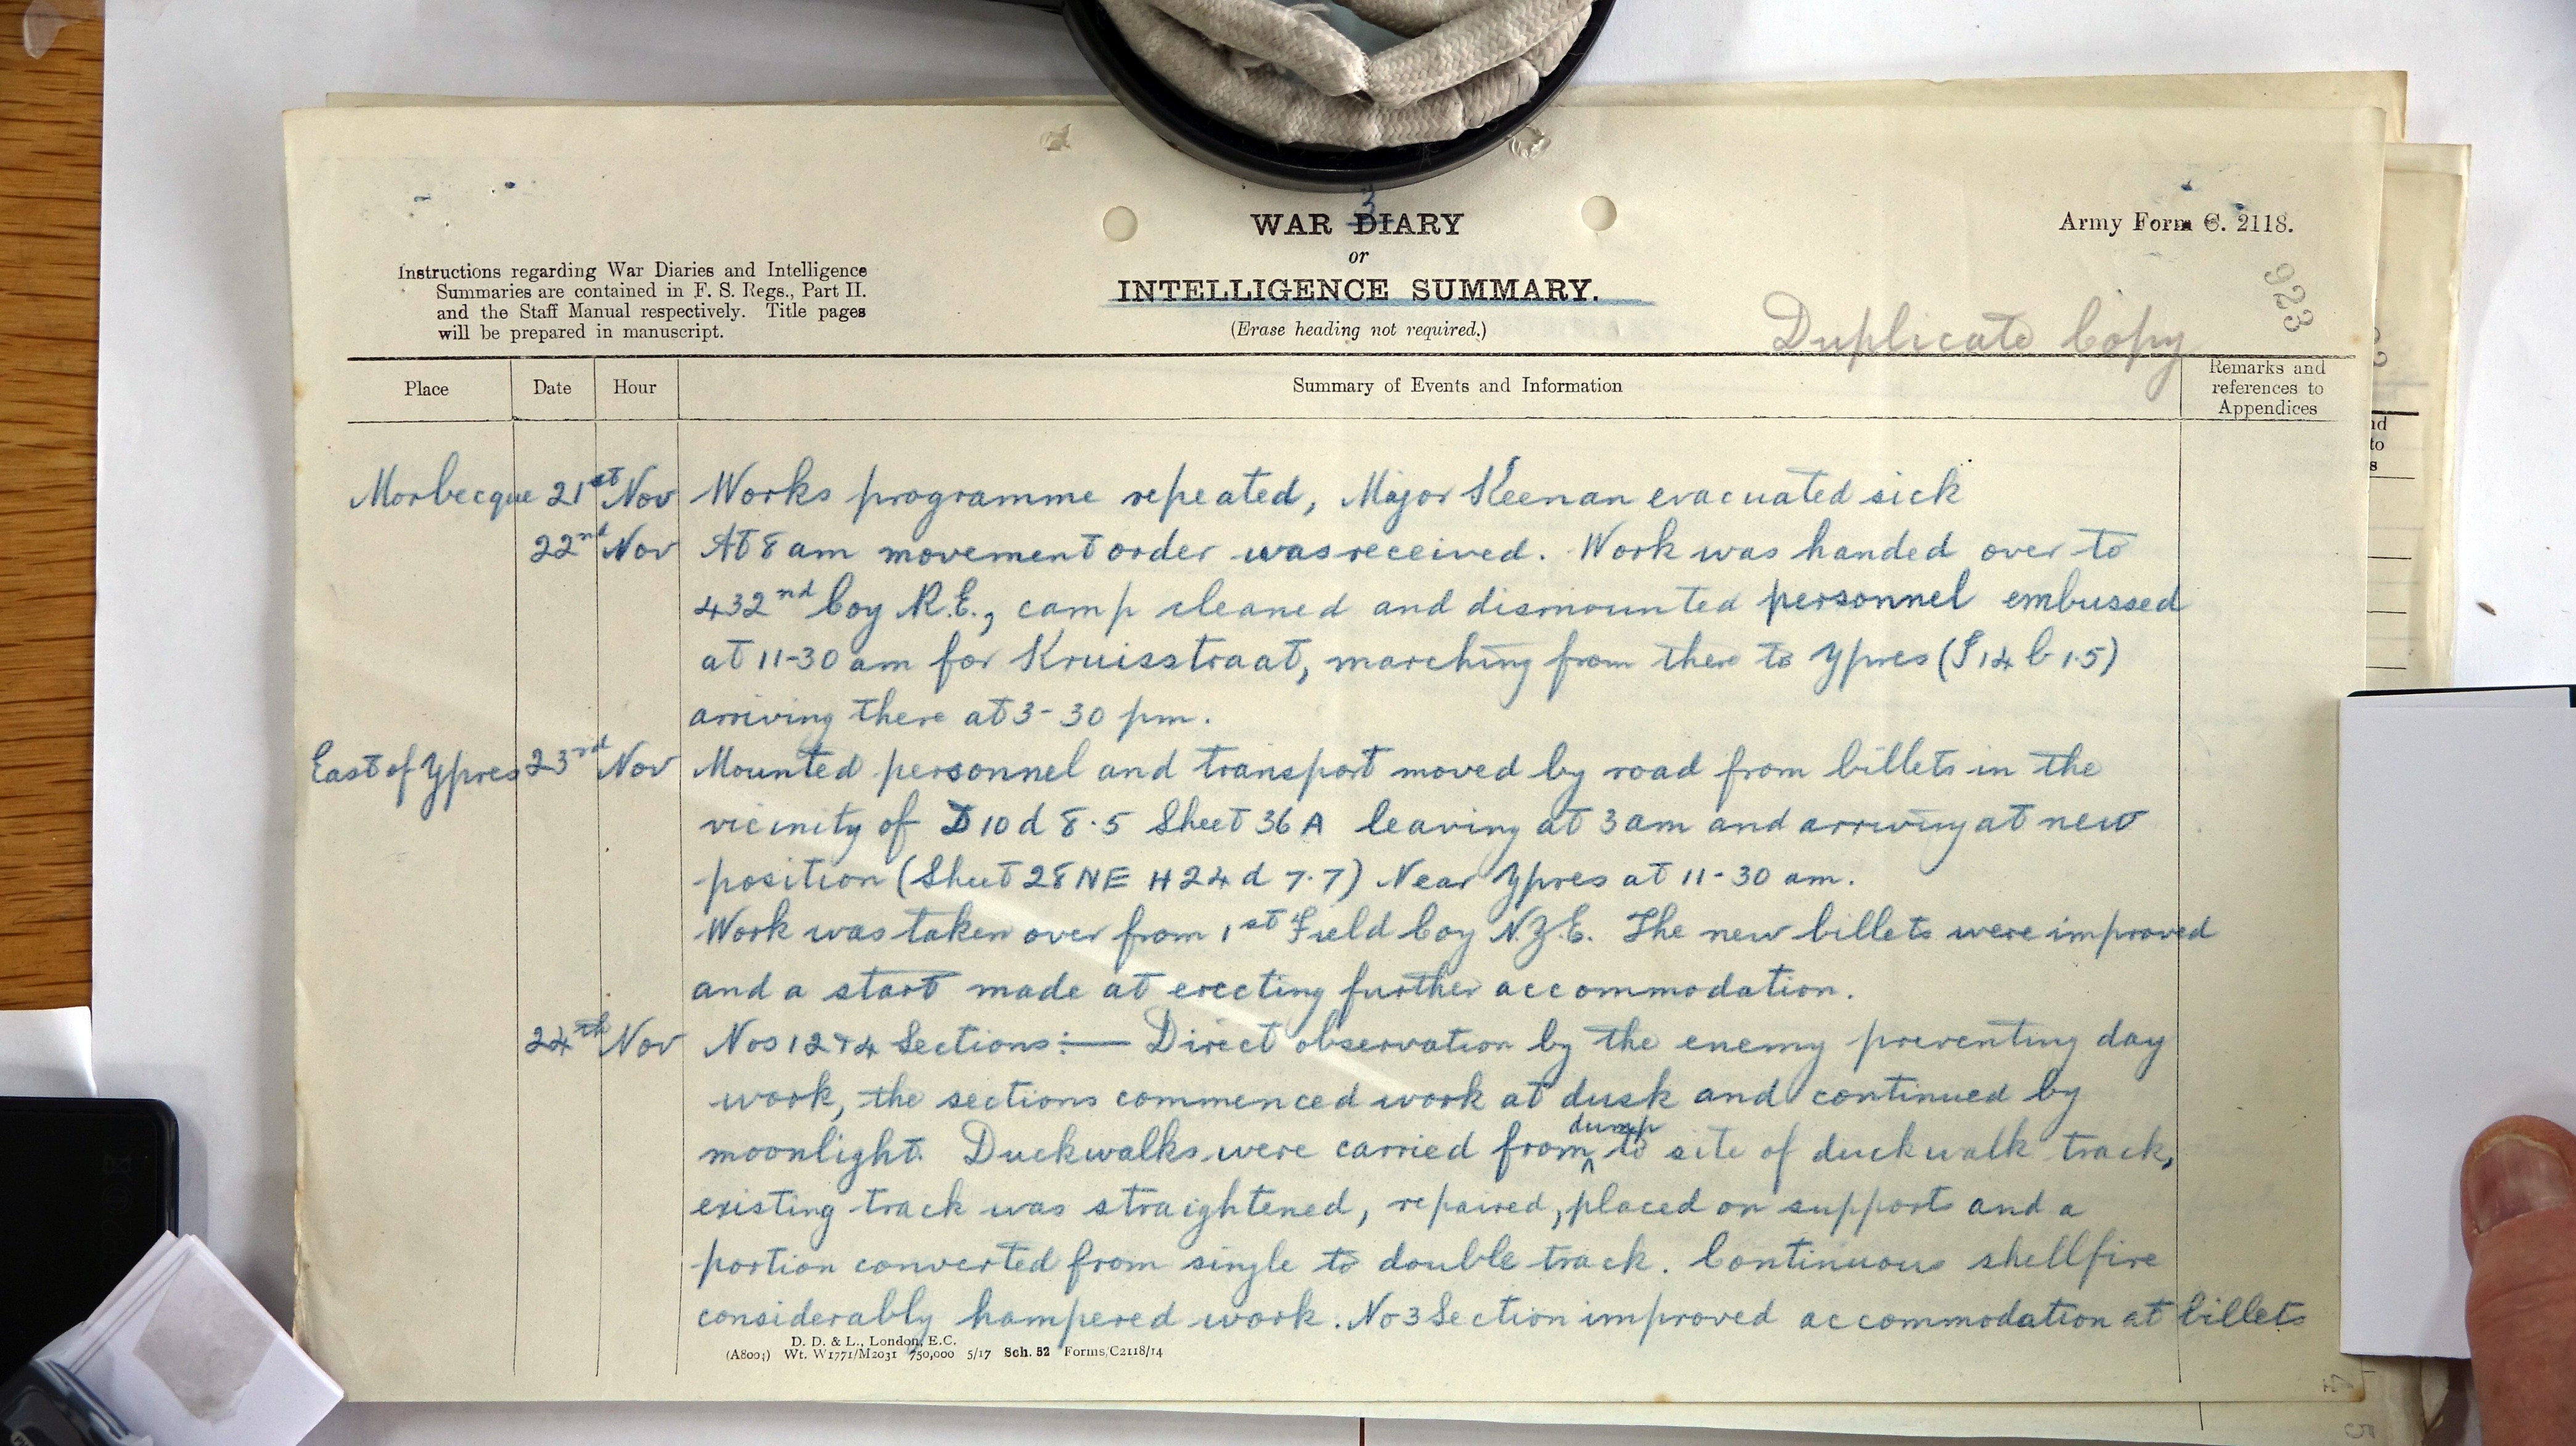 3
WAR DIARY
or
INTELLIGENCE SUMMARY.
(Erase heading not required.)
Army Form C. 2118.
Instructions regarding War Diaries and Intelligence
Summaries are contained in F. S. Regs., Part II.
and the Staff Manual respectively. Title pages
will be prepared in manuscript.
923
Duplicate Copy
Place Date Hour Summary of Events and Information Remarks and
references to
Appendices
Morbecque 21st Nov Works programme repeated, Major Keenan evacuated sick
22nd Nov At 8 am movement order was received. Work was handed over to
432nd Coy R.E., camp cleaned and dismounted personnel embussed
at 11-30 am for Kruisstraat, marching from there to Ypres (I 14 b 1.5)
arriving there at 3-30 pm.
East of Ypres 23rd Nov Mounted personnel and transport moved by road from billets in the
vicinity of D 10 d 8.5 Sheet 36 A leaving at 3 am and arriving at new
position (Sheet 28 NE H 24 d 7.7) Near Ypres at 11-30 am.
Work was taken over from 1st Field Coy N.Z.E. The new billets were improved
and a start made at erecting further accommodation.
24th Nov Nos 1 2 & 4 Sections:— Direct observation by the enemy preventing day
work, the sections commenced work at dusk and continued by
moonlight. Duckwalks were carried from dump to site of duckwalk track,
existing track was straightened, repaired, placed on supports and a
portion converted from single to double track. Continuous shellfire
considerably hampered work. No 3 Section improved accommodation at billets
D. D. & L., London, E.C.
(A8004) Wt. W1771/M2031 750,000 5/17 Sch. 52 Forms/C2118/14